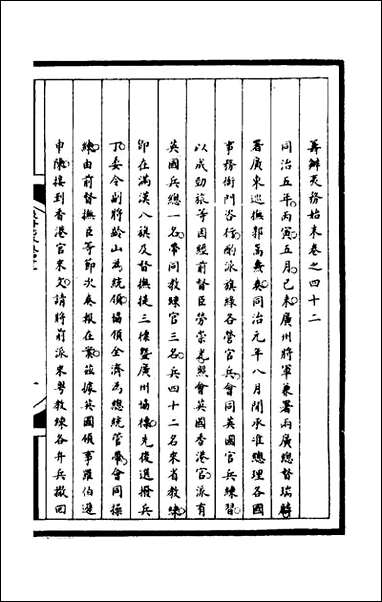 籌辦夷務始末卷之四十二
同治五年丙寅五月己未廣州將軍兼署兩廣總督瑞麟
署廣東巡撫郭嵩燾奏同治元年八月間承准總理各國
事務衙門咨行酌派旗綠各營官兵會同英國官兵練習
以成勁旅等因經前督臣勞崇光照會英國香港官派有
英國兵總一名帶同教練官三名兵四十二名來省教練
即在滿漢八旗及督撫提三標暨廣州協標先後選撥兵
丁委令副將齡山為統領協領全濟為總統管帶會同操
練由前督撫臣等節次奏報在案茲據英國領事羅伯遜
申陳接到香港官來文請將前派來粵教練各弁兵撤回